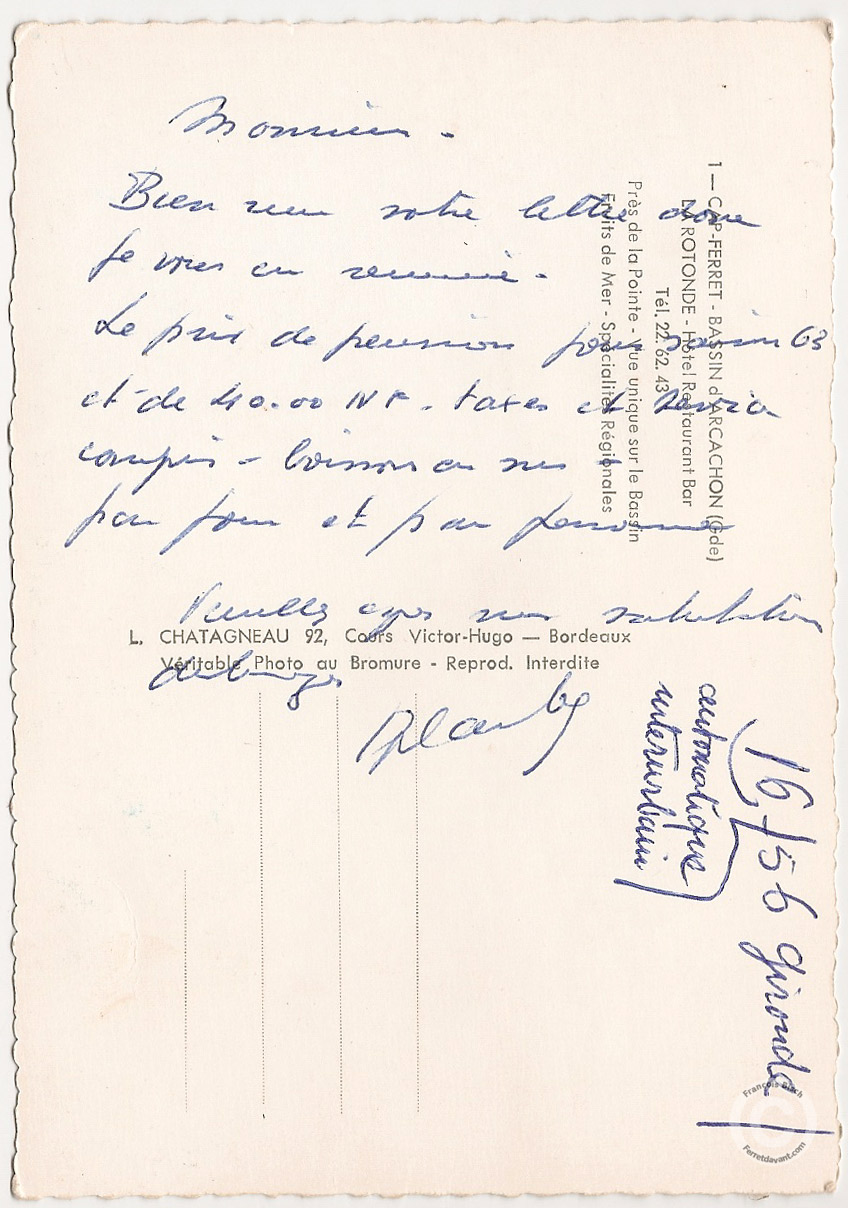 Monsieur -
Bien reçu votre lettre dont
je vous en remercie -
Le prix de pension pour saison 63
et de 40.00 NF - taxes et service
compris - boisson en sus -
par jour et par personne
Veuillez agréer nos salutations
1 — CAP-FERRET - BASSIN d'ARCACHON (Gde)
LA ROTONDE - Hôtel Restaurant Bar
Tél. 22. 62. 43
Près de la Pointe - Vue unique sur le Bassin
Fruits de Mer - Spécialités Régionales
L. CHATAGNEAU 92, Cours Victor-Hugo — Bordeaux
Véritable Photo au Bromure - Reprod. Interdite
16 / 56 Gironde
automatique
interurbain
François Bisch
©
Ferretdavant.com